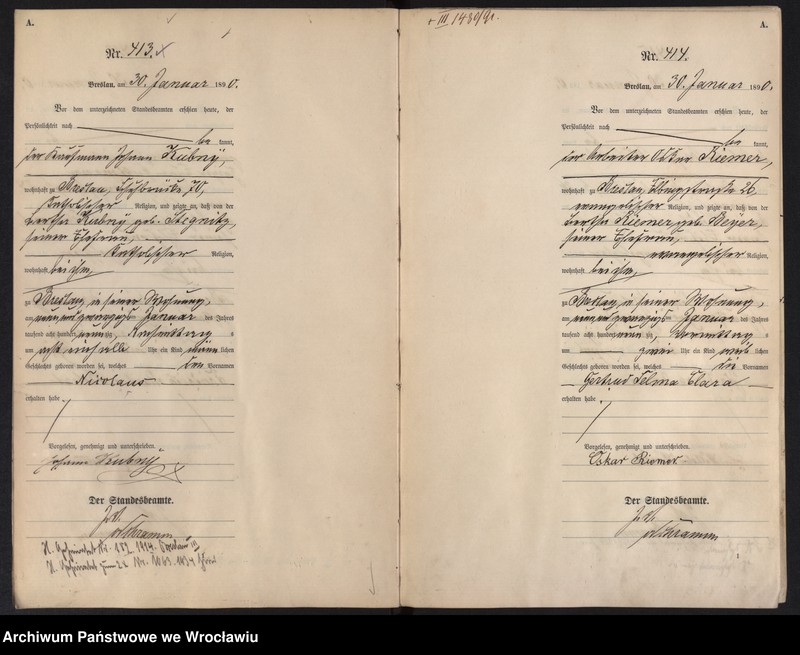 A.
Nr. 413.
Breslau, am 30. Januar 1890.
Vor dem unterzeichneten Standesbeamten erschien heute, der
Persönlichkeit nach
be kannt,
der Kaufmann Johann Kubny,
wohnhaft zu Breslau, 70,
katholischer Religion, und zeigte an, daß von der
Bertha Kubny geb. Stegnitz,
seiner Ehefrau,
katholischer Religion,
wohnhaft bei ihm,
zu Breslau, in seiner Wohnung,
am neunundzwanzigsten Januar des Jahres
tausend acht hundert neunzig, Nachmittag s
um acht einhalb Uhr ein Kind männ lichen
Geschlechts geboren worden sei, welches den Vornamen
Nicolaus
erhalten habe.
Vorgelesen, genehmigt und unterschrieben.
Johann Kubny
Der Standesbeamte.
J. V.
Schramm
+ III 1430/91.
A.
Nr. 414.
Breslau, am 30. Januar 1890.
Vor dem unterzeichneten Standesbeamten erschien heute, der
Persönlichkeit nach
be kannt,
der Arbeiter Oskar Riemer,
wohnhaft zu Breslau, 26,
evangelischer Religion, und zeigte an, daß von der
Bertha Riemer geb. Beyer,
seiner Ehefrau,
evangelischer Religion,
wohnhaft bei ihm,
zu Breslau in seiner Wohnung,
am neunundzwanzigsten Januar des Jahres
tausend acht hundert neunzig, Vormittag s
um zwei Uhr ein Kind weib lichen
Geschlechts geboren worden sei, welches die Vornamen
Gertrud Selma Clara
erhalten habe.
Vorgelesen, genehmigt und unterschrieben.
Oskar Riemer
Der Standesbeamte.
J. V.
Schramm
1
Archiwum Państwowe we Wrocławiu